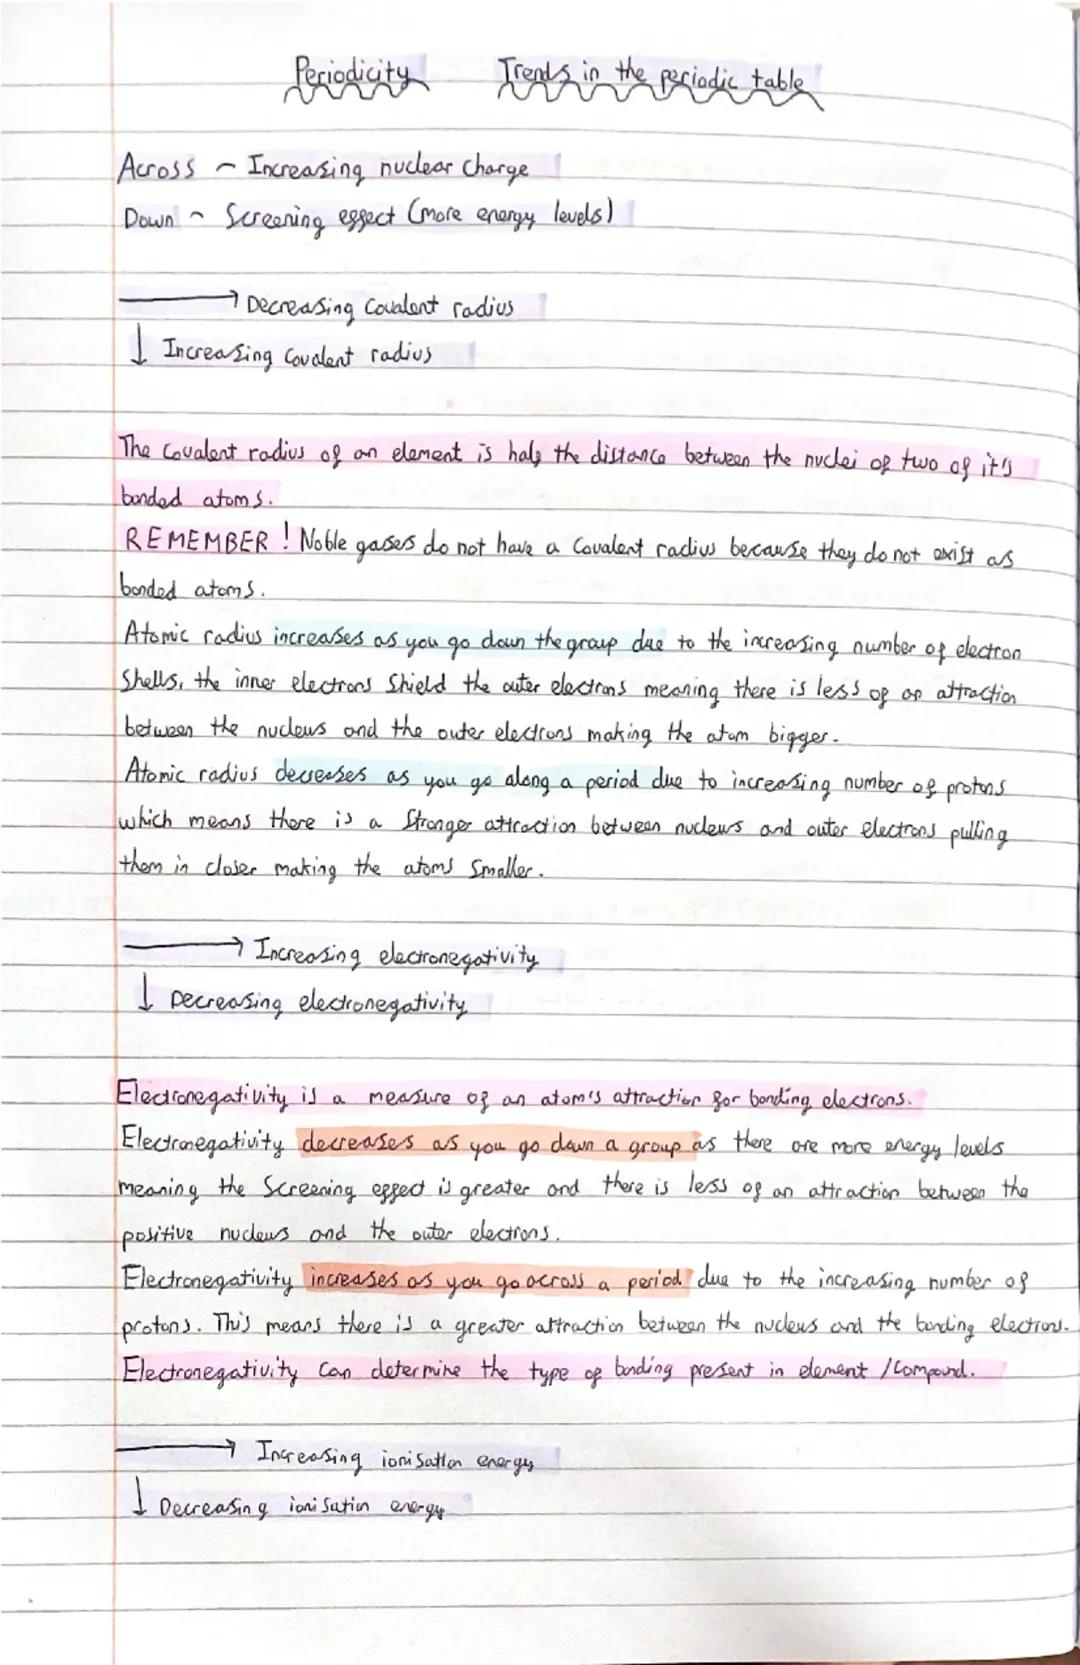 Periodicity Trends in the periodic table
Across ~ Increasing nuclear charge
Down ~ Screening effect (more energy levels)
→ Decreasing Covalent radius
↓ Increasing Covalent radius
The Covalent radius of an element is half the distance between the nuclei of two of it's
bonded atoms.
REMEMBER! Noble gases do not have a Covalent radius because they do not exist as
bonded atoms.
Atomic radius increases as you go down the group due to the increasing number of electron
Shells, the inner electrons Shield the outer electrons meaning there is less of an attraction
between the nucleus and the outer electrons making the atom bigger.
Atomic radius decreases as you go along a period due to increasing number of protons
which means there is a Stronger attraction between nucleus and outer electrons pulling
them in closer making the atoms Smaller.
→ Increasing electronegativity
↓ Decreasing electronegativity
Electronegativity is a measure of an atom's attraction for bonding electrons.
Electronegativity decreases as you go down a group as there are more energy levels
meaning the Screening effect is greater and there is less of an attraction between the
positive nucleus and the outer electrons.
Electronegativity increases as you go across a period due to the increasing number of
protons. This means there is a greater attraction between the nucleus and the bonding electrons.
Electronegativity Can determine the type of bonding present in element / Compound.
→ Increasing ionisation energy
↓ Decreasing ionisation energy